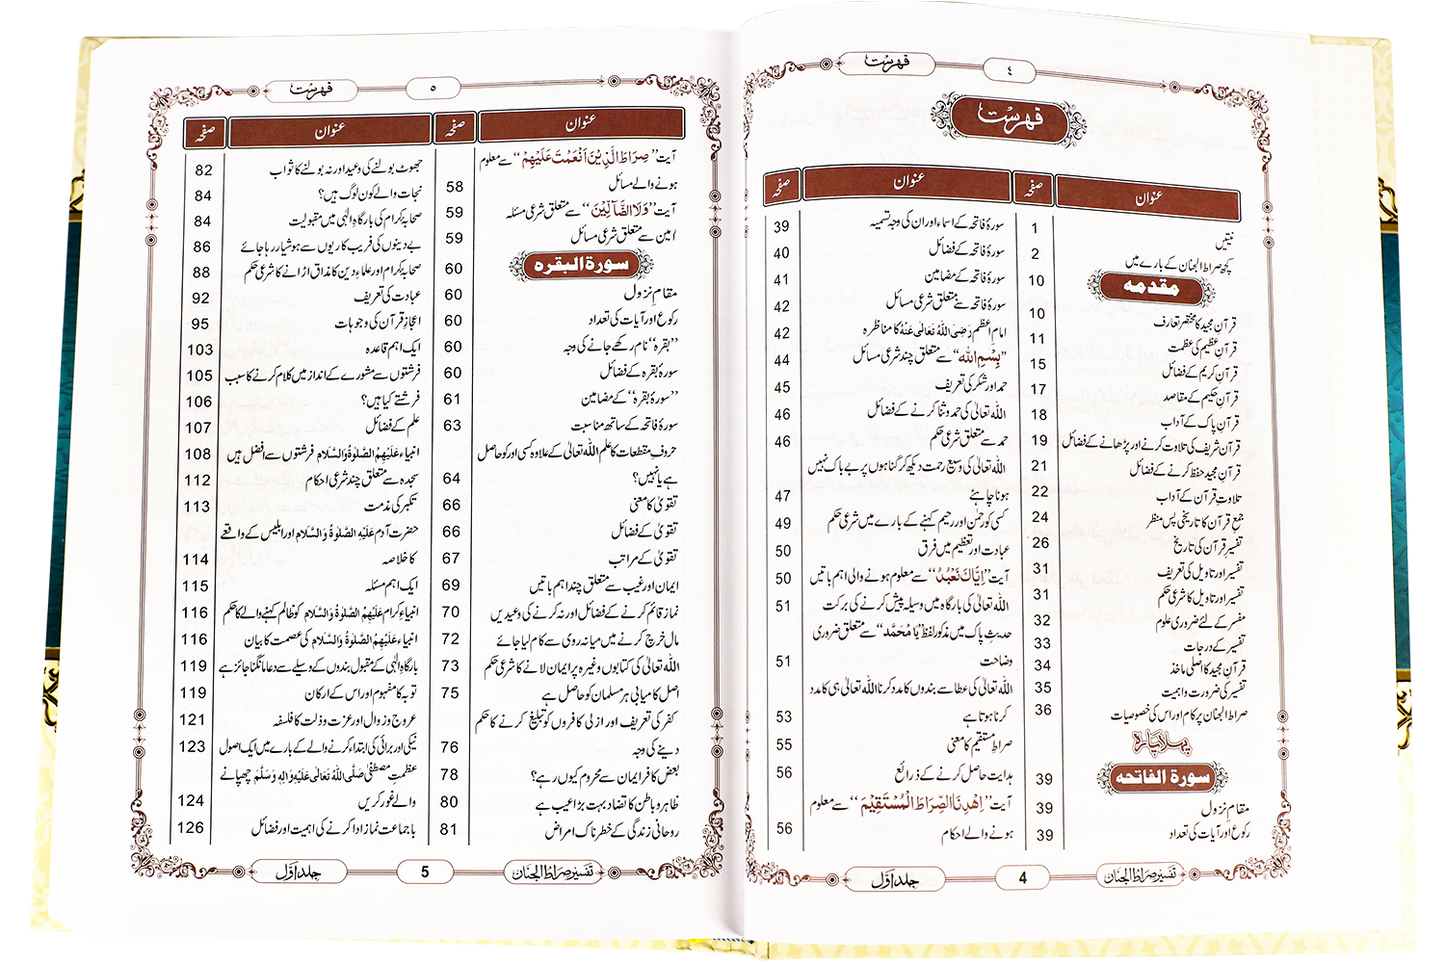 فہرست ٤
فہرست
عنوان صفحہ
نیتیں 1
کچھ صراط الجنان کے بارے میں 2
مقدمہ 10
قرآنِ مجید کا مختصر تعارف 10
قرآنِ عظیم کی عظمت 11
قرآنِ کریم کے فضائل 15
قرآنِ حکیم کے مقاصد 17
قرآنِ پاک کے آداب 18
قرآن شریف کی تلاوت کرنے اور پڑھانے کے فضائل 19
قرآنِ مجید حفظ کرنے کے فضائل 21
تلاوتِ قرآن کے آداب 22
جمعِ قرآن کا تاریخی پس منظر 24
تفسیرِ قرآن کی تاریخ 26
تفسیر اور تاویل کی تعریف 31
تفسیر اور تاویل کا شرعی حکم 31
مفسر کے لئے ضروری علوم 32
تفسیر کے درجات 33
قرآنِ مجید کا اصلی ماخذ 34
تفسیر کی ضرورت و اہمیت 35
صراط الجنان پر کام اور اس کی خصوصیات 36
پہلا پارہ
سورۃ الفاتحہ 39
مقامِ نزول 39
رکوع اور آیات کی تعداد 39
عنوان صفحہ
سورۂ فاتحہ کے اسماء اور ان کی وجہ تسمیہ 39
سورۂ فاتحہ کے فضائل 40
سورۂ فاتحہ کے مضامین 41
سورۂ فاتحہ سے متعلق شرعی مسائل 42
امام اعظم رَضِیَ اللہُ تَعَالٰی عَنْہُ کا مناظرہ 42
”بِسْمِ اللہ“ سے متعلق چند شرعی مسائل 44
حمد اور شکر کی تعریف 45
اللہ تعالیٰ کی حمد و ثنا کرنے کے فضائل 46
حمد سے متعلق شرعی حکم 46
اللہ تعالیٰ کی وسیع رحمت دیکھ کر گناہوں پر بے باک نہیں
ہونا چاہئے 47
کسی کو رحمٰن اور رحیم کہنے کے بارے میں شرعی حکم 49
عبادت اور تعظیم میں فرق 50
آیت ”اِیَّاکَ نَعْبُدُ“ سے معلوم ہونے والی اہم باتیں 50
اللہ تعالیٰ کی بارگاہ میں وسیلہ پیش کرنے کی برکت 51
حدیثِ پاک میں مذکور لفظ ”یَا مُحَمَّد“ سے متعلق ضروری
وضاحت 51
اللہ تعالیٰ کی عطا سے بندوں کا مدد کرنا اللہ تعالیٰ ہی کا مدد
کرنا ہوتا ہے 53
صراطِ مستقیم کا معنی 55
ہدایت حاصل کرنے کے ذرائع 56
آیت ”اِہْدِنَا الصِّرَاطَ الْمُسْتَقِیْمَ“ سے معلوم
ہونے والے احکام 56
تفسیر صراط الجنان 4 جلد اوّل
فہرست ٥
عنوان صفحہ
آیت ”صِرَاطَ الَّذِیْنَ اَنْعَمْتَ عَلَیْہِمْ“ سے معلوم
ہونے والے مسائل 58
آیت ”وَلَا الضَّآلِّیْنَ“ سے متعلق شرعی مسئلہ 59
امین سے متعلق شرعی مسائل 59
سورۃ البقرہ 60
مقامِ نزول 60
رکوع اور آیات کی تعداد 60
”بقرہ“ نام رکھے جانے کی وجہ 60
سورۂ بقرہ کے فضائل 60
”سورۂ بقرہ“ کے مضامین 61
سورۂ فاتحہ کے ساتھ مناسبت 63
حروفِ مقطعات کا علم اللہ تعالیٰ کے علاوہ کسی اور کو حاصل
ہے یا نہیں؟ 64
تقویٰ کا معنی 66
تقویٰ کے فضائل 66
تقویٰ کے مراتب 67
ایمان اور غیب سے متعلق چند اہم باتیں 69
نماز قائم کرنے کے فضائل اور نہ کرنے کی وعیدیں 70
مال خرچ کرنے میں میانہ روی سے کام لیا جائے 72
اللہ تعالیٰ کی کتابوں وغیرہ پر ایمان لانے کا شرعی حکم 73
اصل کامیابی ہر مسلمان کو حاصل ہے 75
کفر کی تعریف اور ازلی کافروں کو تبلیغ کرنے کا حکم
دینے کی وجہ 76
بعض کافر ایمان سے محروم کیوں رہے؟ 78
ظاہر و باطن کا تضاد بہت بڑا عیب ہے 80
روحانی زندگی کے خطرناک امراض 81
عنوان صفحہ
جھوٹ بولنے کی وعید اور نہ بولنے کا ثواب 82
نجات والے کون لوگ ہیں؟ 84
صحابہ کرام کی بارگاہِ الٰہی میں مقبولیت 84
بے دینوں کی فریب کاریوں سے ہوشیار رہا جائے 86
صحابہ کرام اور علماءِ دین کا مذاق اڑانے کا شرعی حکم 88
عبادت کی تعریف 92
اعجازِ قرآن کی وجوہات 95
ایک اہم قاعدہ 103
فرشتوں سے مشورے کے انداز میں کلام کرنے کا سبب 105
فرشتے کیا ہیں؟ 106
علم کے فضائل 107
انبیاء عَلَیْہِمُ الصَّلٰوۃُ وَالسَّلَام فرشتوں سے افضل ہیں 108
سجدہ سے متعلق چند شرعی احکام 112
تکبر کی مذمت 113
حضرت آدم عَلَیْہِ الصَّلٰوۃُ وَالسَّلَام اور ابلیس کے واقعے
کا خلاصہ 114
ایک اہم مسئلہ 115
انبیاءِ کرام عَلَیْہِمُ الصَّلٰوۃُ وَالسَّلَام کو ظالم کہنے والے کا حکم 116
انبیاء عَلَیْہِمُ الصَّلٰوۃُ وَالسَّلَام کی عصمت کا بیان 116
بارگاہِ الٰہی کے مقبول بندوں کے وسیلے سے دعا مانگنا جائز ہے 119
توبہ کا مفہوم اور اس کے ارکان 119
عروج و زوال اور عزت و ذلت کا فلسفہ 121
نیکی اور برائی کی ابتداء کرنے والے کے بارے میں ایک اصول 123
عظمتِ مصطفیٰ صَلَّی اللہُ تَعَالٰی عَلَیْہِ وَاٰلِہٖ وَسَلَّمَ چھپانے
والے غور کریں 124
با جماعت نماز ادا کرنے کی اہمیت اور فضائل 126
تفسیر صراط الجنان 5 جلد اوّل